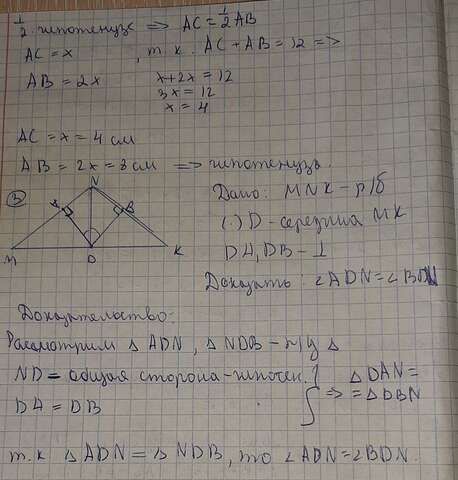 1/2 гипотенузе => AC = 1/2 AB
AC = x , т.к. AC + AB = 12 =>
AB = 2x x + 2x = 12
3x = 12
x = 4
AC = x = 4 см
AB = 2x = 8 см => гипотенуза.
3
N
A
B
M
D
K
Дано: MNK - р/б
(.) D - середина MK
DA, DB - ⊥
Доказать: ∠ADN = ∠BDN
Доказательство:
Рассмотрим △ ADN, △ NDB - п/у △
ND = общая сторона - гипотен. } => △ DAN = = △ DBN
DA = DB
т.к △ ADN = △ NDB, то ∠ADN = ∠BDN.